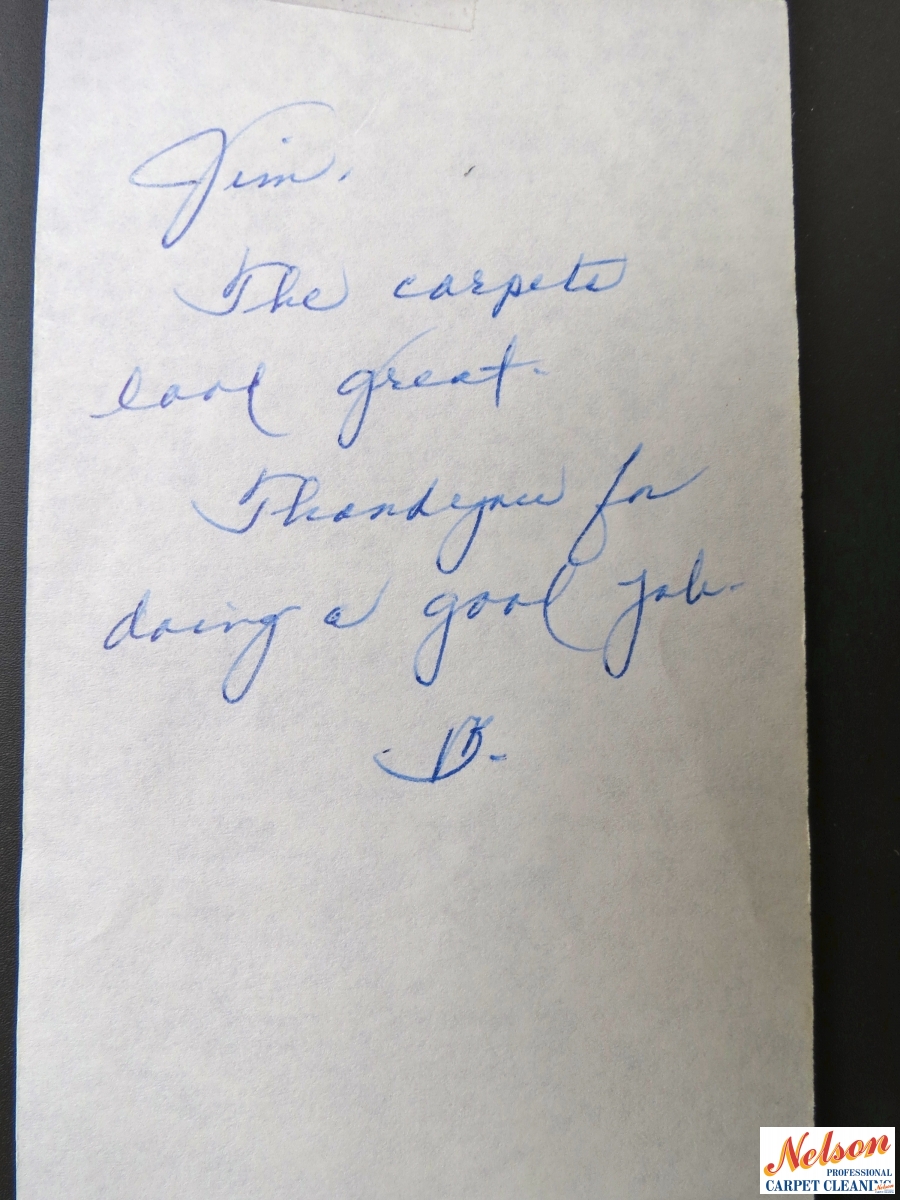 Jim.
The carpets
look great.
Thankyou for
doing a good job.
B.
Nelson
PROFESSIONAL
CARPET CLEANING